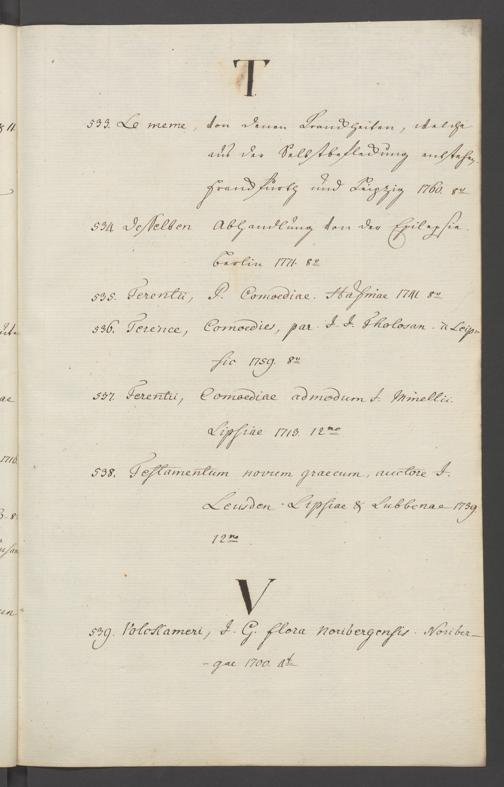 T
533. Le meme, von denen Krandheiten, welche
aus der Selbstbefleckung entstehen.
Frandfurth und Leipzig 1760. 8º
534 Desselben Abhandlung von der Epilepsie.
Berlin 1771. 8º
535. Terentii, P. Comoediae. Hafniae 1741 8º
536. Terence, Comoedies, par J. J. Tholosan. a Leip-
sic 1759. 8º
537. Terentii, Comoediae admodum J. Minellii.
Lipsiae 1713. 12mo
538. Testamentum novum graecum, auctore J.
Leusden. Lipsiae & Lubbenae 1739
12mo
V
539. Volckameri, J. G. flora noribergensis. Noriber-
-gae 1700. 4t